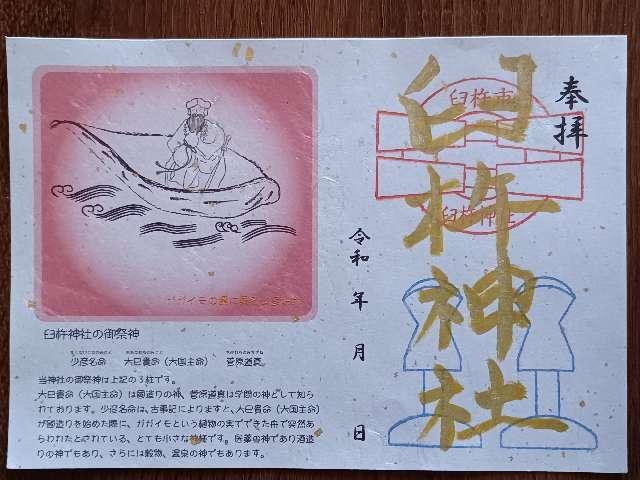 奉拝
臼杵市
臼杵神社
臼杵神社
令和 年 月 日
臼杵神社の御祭神
少彦名命 大己貴命(大国主命) 菅原道真
当神社の御祭神は上記の3柱です。
大己貴命(大国主命)は国造りの神、菅原道真は学問の神として知ら
れております。少彦名命は、古事記によりますと、大己貴命(大国主命)
が国造りを始めた際に、ガガイモという植物の実でできた舟で突然あ
らわれたとされている、とても小さな神様です。医薬の神であり酒造
りの神でもあり、さらには穀物、温泉の神でもあります。